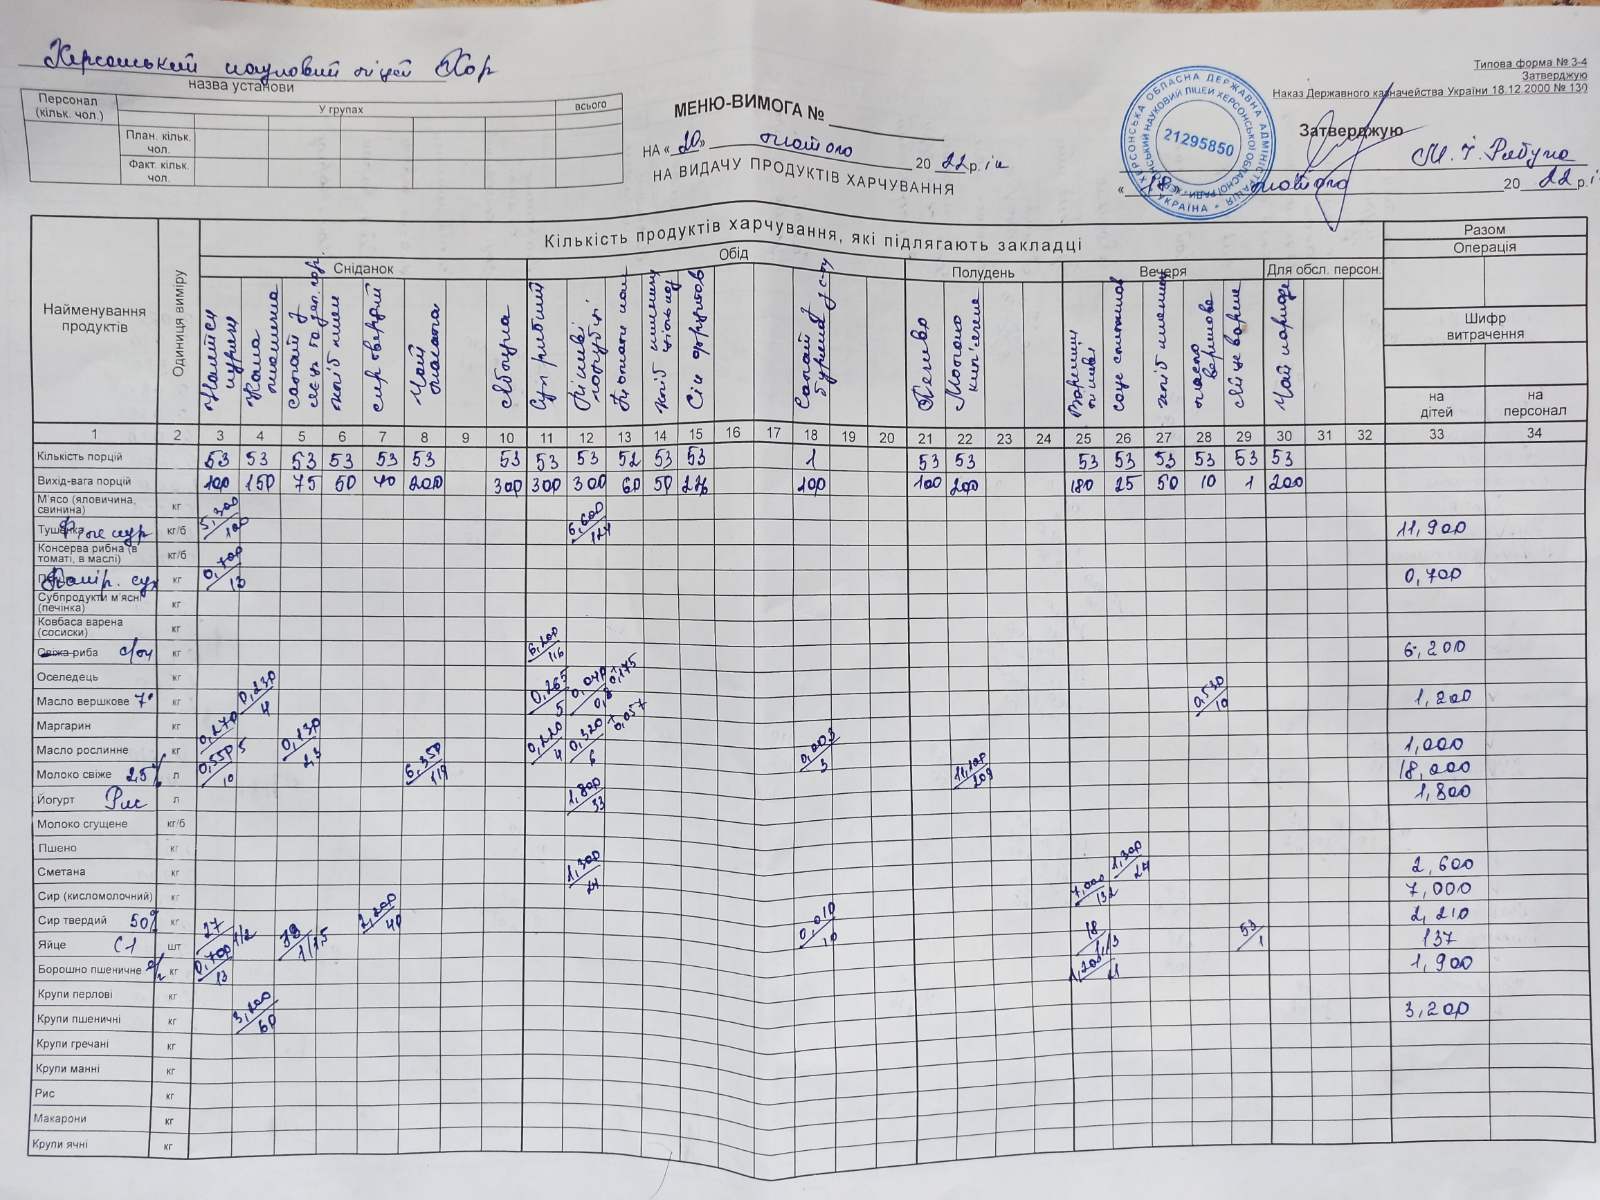 Херсонський науковий ліцей Хор
назва установи
Типова форма № 3-4
Затверджую
Наказ Державного казначейства України 18.12.2000 № 130
Персонал (кільк. чол.) У групах всього
План. кільк. чол.
Факт. кільк. чол.
МЕНЮ-ВИМОГА №
НА «20» лютого 2022 р.
НА ВИДАЧУ ПРОДУКТІВ ХАРЧУВАННЯ
21295850
Затверджую
«18» лютого 2022 р.
Найменування продуктів
Одиниця виміру
Кількість продуктів харчування, які підлягають закладці
Разом
Операція
Сніданок Обід Полудень Вечеря Для обсл. персон.
Шифр витрачення
на дітей на персонал
Каша
хліб
сир твердий
Чай
Яблука
Суп рибний
Сік фруктов
Печиво
Молоко кип'ячене
масло вершкове
Яйце варене
1 2 3 4 5 6 7 8 9 10 11 12 13 14 15 16 17 18 19 20 21 22 23 24 25 26 27 28 29 30 31 32 33 34
Кількість порцій 53 53 53 53 53 53 53 53 53 52 53 53 1 53 53 53 53 53 53 53 53
Вихід-вага порцій 100 150 75 50 40 200 300 300 300 60 50 100 100 200 180 25 50 10 1 200
М'ясо (яловичина, свинина) кг
Тушенка кг/б 5,300/100 6,600/124 11,900
Консерва рибна (в томаті, в маслі) кг/б
кг 0,700/13 0,700
Субпродукти м'ясні (печінка) кг
Ковбаса варена (сосиски) кг
Свіжа риба с/м кг 6,200/116 6,200
Оселедець кг
Масло вершкове кг 0,230/4 0,265/5 0,530/10 1,200
Маргарин кг
Масло рослинне кг 0,270/5 0,130/2,3 0,220/4 0,320/6 0,003/3 1,000
Молоко свіже 2,5% л 0,550/10 6,350/119 11,100/209 18,000
Йогурт Рис л 1,800/33 1,800
Молоко сгущене кг/б
Пшено кг
Сметана кг 1,300/24 1,300/24 2,600
Сир (кисломолочний) кг 7,000/132 7,000
Сир твердий 50% кг 2,200/40 0,010/10 2,210
Яйце С1 шт 27 1/2 39 18 1/3 53/1 137
Борошно пшеничне кг 0,700/13 1,200 1,900
Крупи перлові кг
Крупи пшеничні кг 3,200/60 3,200
Крупи гречані кг
Крупи манні кг
Рис кг
Макарони кг
Крупи ячні кг